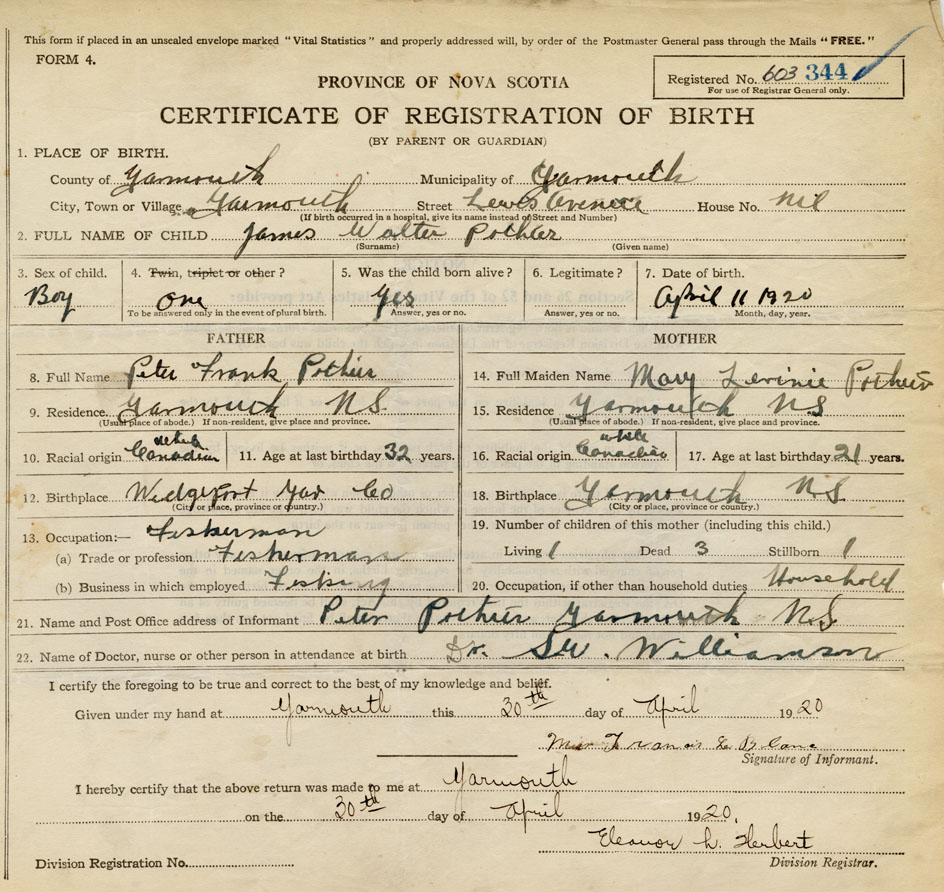 This form if placed in an unsealed envelope marked "Vital Statistics" and properly addressed will, by order of the Postmaster General pass through the Mails "FREE."
FORM 4.
Registered No. 603 344
For use of Registrar General only.
PROVINCE OF NOVA SCOTIA
CERTIFICATE OF REGISTRATION OF BIRTH
(BY PARENT OR GUARDIAN)
1. PLACE OF BIRTH.
County of Yarmouth Municipality of Yarmouth
City, Town or Village Yarmouth Street Lewis Avenue House No. Nil
(If birth occurred in a hospital, give its name instead of Street and Number)
2. FULL NAME OF CHILD James Walter Pothier
(Surname) (Given name)
3. Sex of child. 4. Twin, triplet or other? 5. Was the child born alive? 6. Legitimate? 7. Date of birth.
Boy one Yes April 11 1920
To be answered only in the event of plural birth. Answer, yes or no. Answer, yes or no. Month, day, year.
FATHER MOTHER
8. Full Name Peter Frank Pothier 14. Full Maiden Name Mary Levinie Pothier
9. Residence. Yarmouth N.S. 15. Residence Yarmouth N S
(Usual place of abode.) If non-resident, give place and province. (Usual place of abode.) If non-resident, give place and province.
white white
10. Racial origin Canadian 11. Age at last birthday 32 years. 16. Racial origin Canadian 17. Age at last birthday 21 years.
12. Birthplace Wedgeport Yar Co 18. Birthplace Yarmouth N.S.
(City or place, province or country.) (City or place, province or country.)
13. Occupation:— Fisherman 19. Number of children of this mother (including this child.)
(a) Trade or profession Fisherman Living 1 Dead 3 Stillborn 1
(b) Business in which employed Fishing 20. Occupation, if other than household duties Household
21. Name and Post Office address of Informant Peter Pothier Yarmouth N.S.
22. Name of Doctor, nurse or other person in attendance at birth Dr. SW. Williamson
I certify the foregoing to be true and correct to the best of my knowledge and belief.
Given under my hand at Yarmouth this 30th day of April 1920
Francis LeBlanc
Signature of Informant.
I hereby certify that the above return was made to me at Yarmouth
on the 30th day of April 1920.
Eleanor L. Herbert
Division Registration No. Division Registrar.